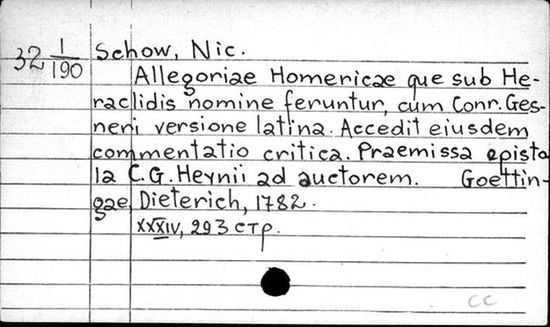 32 1/190 Schow, Nic.
Allegoriae Homericae que sub He-
raclidis nomine feruntur, cum Conr. Ges-
neri versione latina. Accedit eiusdem
commentatio critica. Praemissa episto
la C.G. Heynii ad auctorem. Goettin-
gae, Dieterich, 1782.
XXXIV, 293 стр.
cc